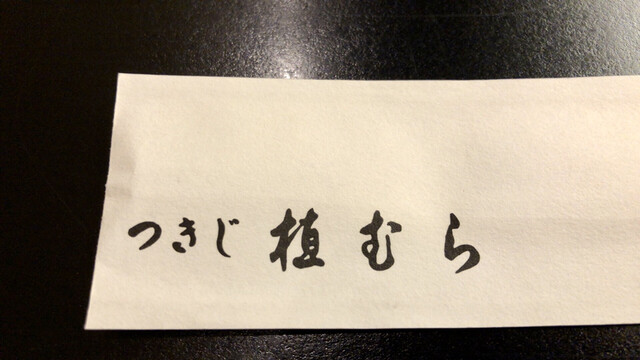 つきじ 植むら